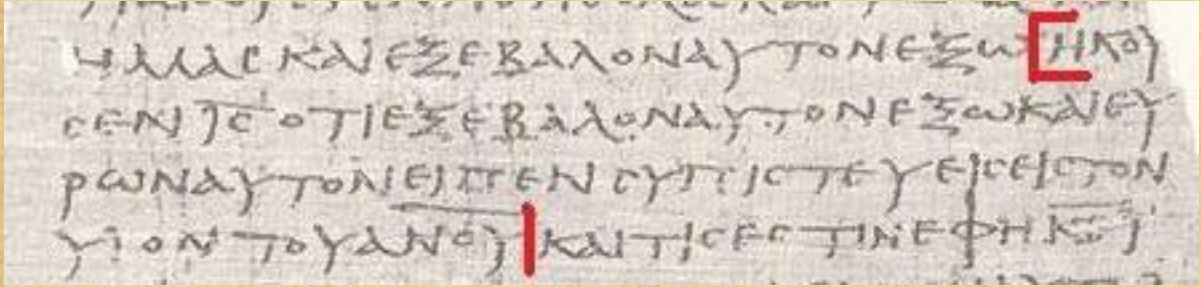 ΗΜΑϹΚΑΙΕΞΕΒΑΛΟΝΑΥΤΟΝΕΞΩΗΚΟΥ
ϹΕΝΙ̅Ϲ̅ΟΤΙΕΞΕΒΑΛΟΝΑΥΤΟΝΕΞΩΚΑΙΕΥ
ΡΩΝΑΥΤΟΝΕΙΠΕΝϹΥΠΙϹΤΕΥΕΙϹΕΙϹΤΟΝ
ΥΙΟΝΤΟΥΑ̅Ν̅Ο̅Υ̅ΚΑΙΤΙϹΕϹΤΙΝΕΦΗΚ̅Ε̅Ι